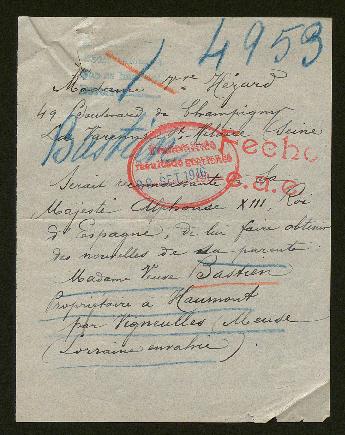 4953
Madame Vve Hézard
49 Boulevard de Champigny
La Varenne St Hilaire (Seine)
Bastien
Hecho
28 OCT 1916
e.a.e.
Serait reconnaissante à Sa
Majesté Alphonse XIII, Roi
d'Espagne, de lui faire obtenir
des nouvelles de sa parente:
Madame Veuve Bastien
Propriétaire à Haumont
par Vigneulles (Meuse
(Lorraine envahie).